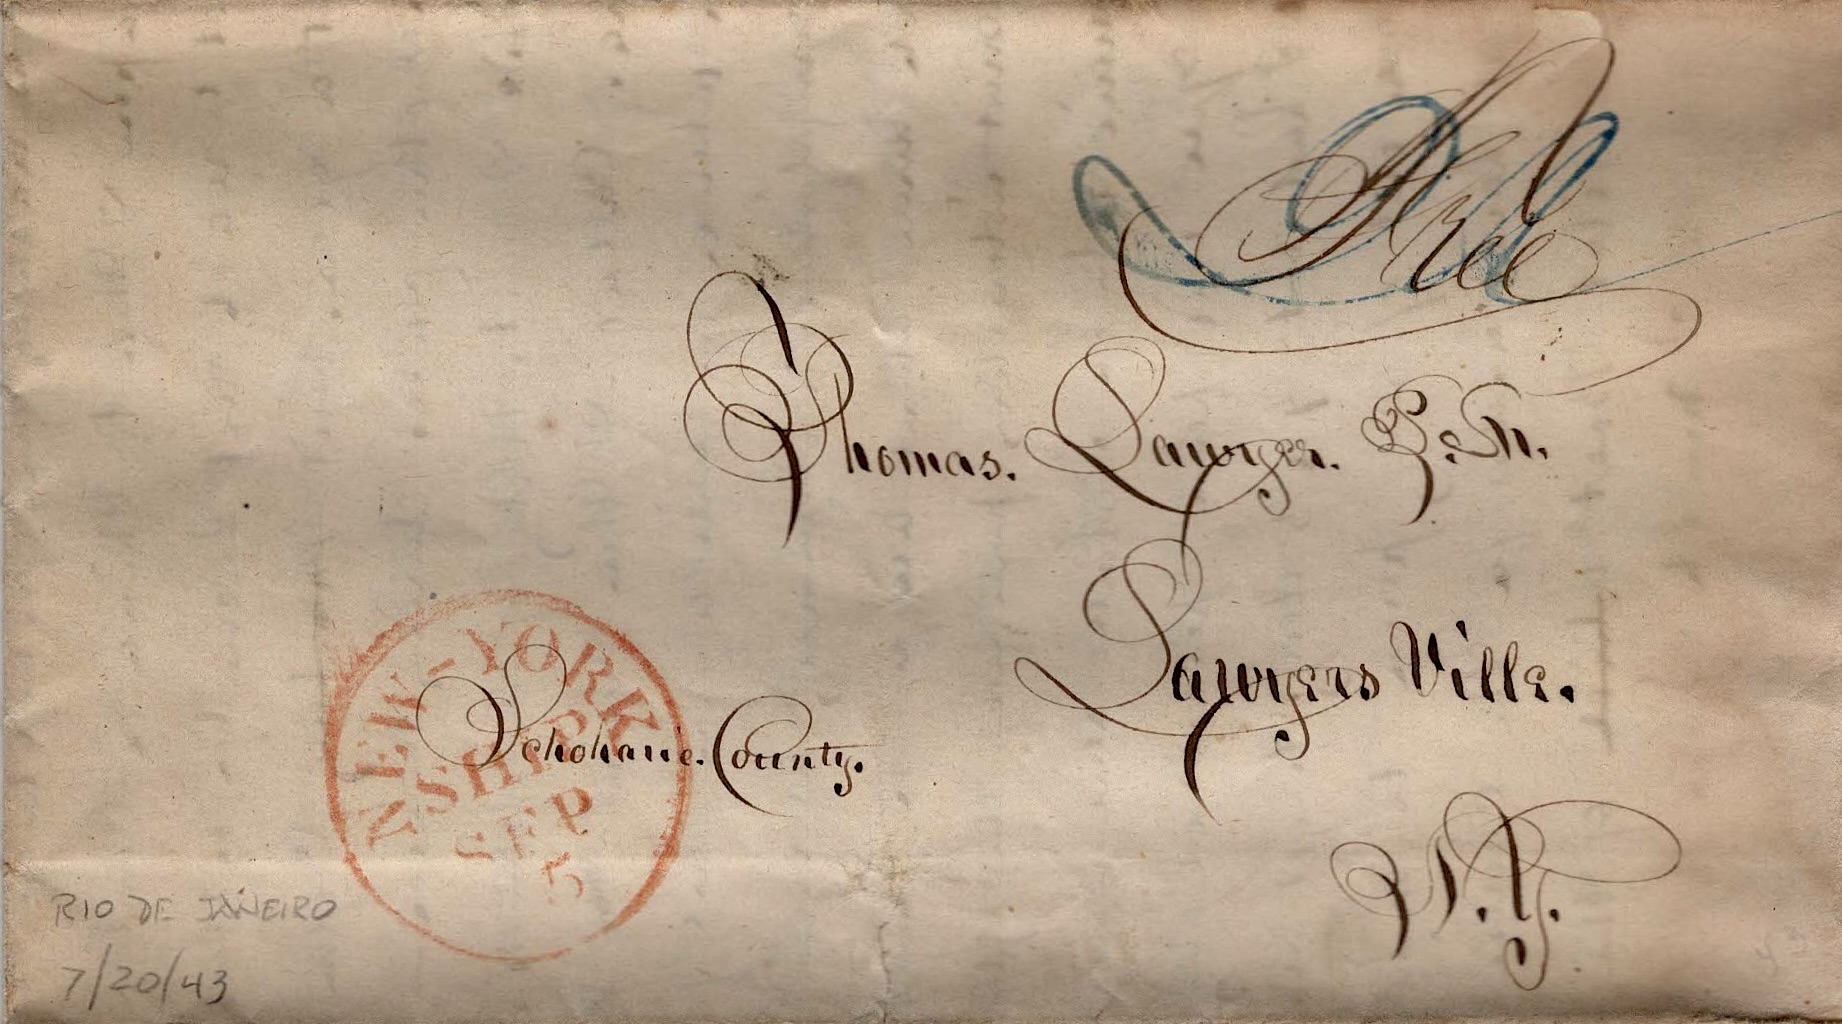 Free
Thomas. Lawyer. P. M.
Lawyers Ville.
Schoharie. County.
N. Y.
NEW-YORK
SHIP
SEP
5
RIO DE JANEIRO
7/20/43